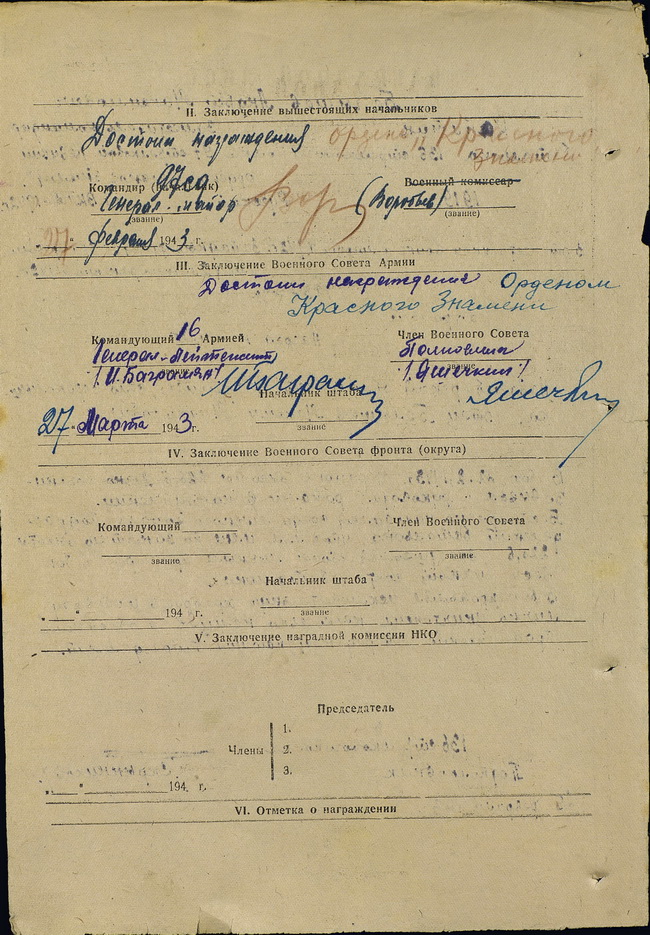 II. Заключение вышестоящих начальников
Достоин награждения орденом Красного
Знамени
97 сд
Командир (начальник) Военный комиссар
Генерал-майор (Воробьев)
(звание) (звание)
27 февраля 1943 г.
III. Заключение Военного Совета Армии
Достоин награждения Орденом
Красного Знамени
Командующий 16 Армией Член Военного Совета
Генерал-лейтенант Полковник
звание звание
/И. Баграмян/ /Яшечкин/
Начальник штаба
звание
27 Марта 1943 г.
IV. Заключение Военного Совета фронта (округа)
Командующий Член Военного Совета
звание звание
Начальник штаба
звание
„ “ 194 г.
V. Заключение наградной комиссии НКО
Председатель
1.
Члены 2.
3.
„ “ 194 г.
VI. Отметка о награждении